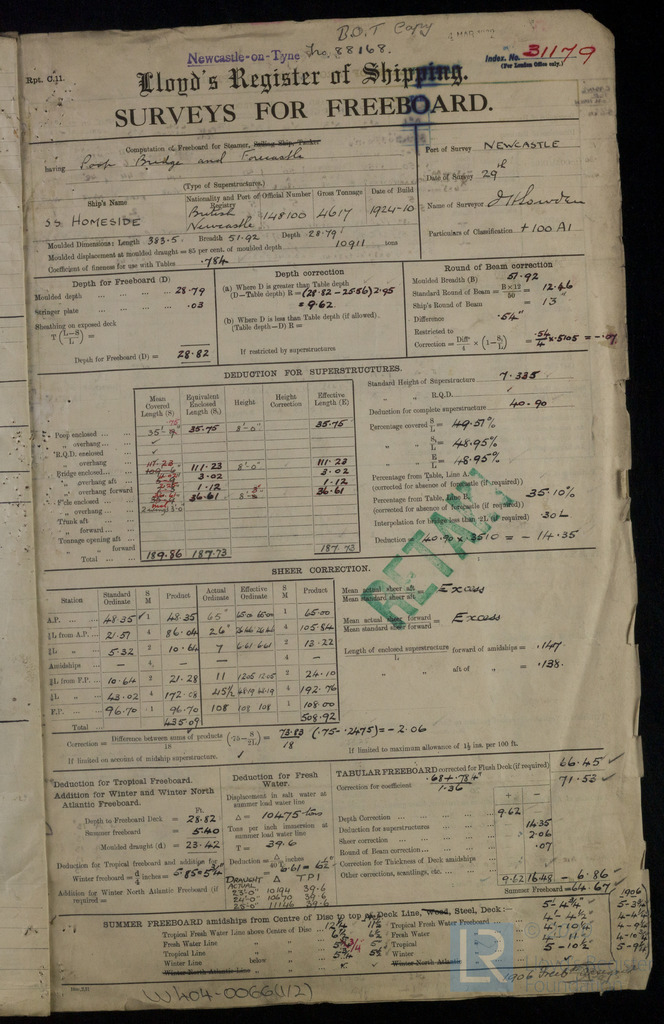 B.O.T Copy
Newcastle-on-Tyne No. 88168.
Index. No. 31179
(For London Office only.)
Rpt. C.11.
Lloyd's Register of Shipping.
SURVEYS FOR FREEBOARD.
Computation of Freeboard for Steamer, Sailing Ship, Tanker
having Poop Bridge and Forecastle
(Type of Superstructures.)
Port of Survey NEWCASTLE
Date of Survey 29th
Name of Surveyor
Particulars of Classification +100 A1
Ship's Name
Nationality and Port of Registry
Official Number
Gross Tonnage
Date of Build
SS HOMESIDE
British Newcastle
148100
4617
1924-10
Moulded Dimensions: Length 383.5 Breadth 51.92 Depth 28.79
Moulded displacement at moulded draught = 85 per cent. of moulded depth 10911 tons
Coefficient of fineness for use with Tables .784
Depth for Freeboard (D)
Moulded depth 28.79
Stringer plate .03
Sheathing on exposed deck
T (L-S/L) =
Depth for Freeboard (D) = 28.82
Depth correction
(a) Where D is greater than Table depth
(D-Table depth) R = (28.82-25.56) 2.95
= 9.62
(b) Where D is less than Table depth (if allowed)
(Table depth-D) R =
If restricted by superstructures
Round of Beam correction
Moulded Breadth (B) 51.92
Standard Round of Beam = B×12/50 = 12.46
Ship's Round of Beam = 13
Difference .54"
Restricted to
Correction = Diff/4 × (1 - S/L) = .54/4 × .5105 = -.07
DEDUCTION FOR SUPERSTRUCTURES.
Mean Covered Length (S)
Equivalent Enclosed Length (S1)
Height
Height Correction
Effective Length (E)
Poop enclosed 35.75 35.75 8'-0" 35.75
" overhang
R.Q.D. enclosed
" overhang
Bridge enclosed 111.23 111.23 8'-0" 111.23
" overhang aft 3.02 3.02
" overhang forward 1.12 1.12
F'cle enclosed 36.61 36.61
" overhang
Trunk aft
" forward
Tonnage opening aft
" " forward
Total 189.86 187.73 187.73
Standard Height of Superstructure 7.335
" " R.Q.D.
Deduction for complete superstructure 40.90
Percentage covered S/L = 49.51%
" " S1/L = 48.95%
" " E/L = 48.95%
Percentage from Table, Line A.
(corrected for absence of forecastle (if required))
Percentage from Table, Line B. 35.10%
(corrected for absence of forecastle (if required))
Interpolation for bridge less than .2L (if required) 30L
Deduction = 40.90 × .3510 = - 14.35
RETAIN
SHEER CORRECTION.
Station
Standard Ordinate
S M
Product
Actual Ordinate
Effective Ordinate
S M
Product
A.P. 48.35 1 48.35 65" 65.00 65.00 1 65.00
1/6L from A.P. 21.51 4 86.04 26" 26.46 26.46 4 105.84
1/3L " 5.32 2 10.64 7 6.61 6.61 2 13.22
Amidships — 4 — — 4 —
1/3L from F.P. 10.64 2 21.28 11 12.05 12.05 2 24.10
1/6L " 43.02 4 172.08 45½ 48.19 48.19 4 192.76
F.P. 96.70 1 96.70 108 108 108 1 108.00
Total 435.09 508.92
Mean actual sheer aft / Mean standard sheer aft = Excess
Mean actual sheer forward / Mean standard sheer forward = Excess
Length of enclosed superstructure / L forward of amidships = .147
" " aft of " = .138
Correction = Difference between sums of products / 18 (.75 - S/2L) = 73.83/18 (.75-.2475) = - 2.06
If limited on account of midship superstructure.
If limited to maximum allowance of 1½ ins. per 100 ft.
Deduction for Tropical Freeboard.
Addition for Winter and Winter North Atlantic Freeboard.
Ft.
Depth to Freeboard Deck = 28.82
Summer freeboard = 5.40
Moulded draught (d) = 23.42
Deduction for Tropical freeboard and addition for
Winter freeboard = d/4 inches = 5.85 = 5¾"
Addition for Winter North Atlantic Freeboard (if required) =
Deduction for Fresh Water.
Displacement in salt water at summer load water line
Δ = 10475 tons
Tons per inch immersion at summer load water line
T = 39.6
Deduction = Δ/40T inches
= 6.61 = 6½"
DRAUGHT Δ TPI
ACTUAL
23'-0" 10194 39.6
24'-0" 10670 39.6
25'-0" 11146 39.6
TABULAR FREEBOARD corrected for Flush Deck (if required) 66.45
Correction for coefficient .68+.784/1.36 71.53
+ −
Depth Correction 9.62
Deduction for superstructures 14.35
Sheer correction 2.06
Round of Beam correction .07
Correction for Thickness of Deck amidships
Other corrections, scantlings, etc.
9.62 16.48 - 6.86
Summer Freeboard = 64.67
SUMMER FREEBOARD amidships from Centre of Disc to top of Deck Line, Wood, Steel, Deck:—
Tropical Fresh Water Line above Centre of Disc
Fresh Water Line "
Tropical Line "
Winter Line below
Winter North Atlantic Line "
Tropical Fresh Water Freeboard
Fresh Water "
Tropical "
Winter "
Winter North Atlantic
(1906)
5-4¾"
4'-4½"
4'-10¼"
4'-11"
5-10½"
1906 Freeb
LR
W404-0066(1/2)